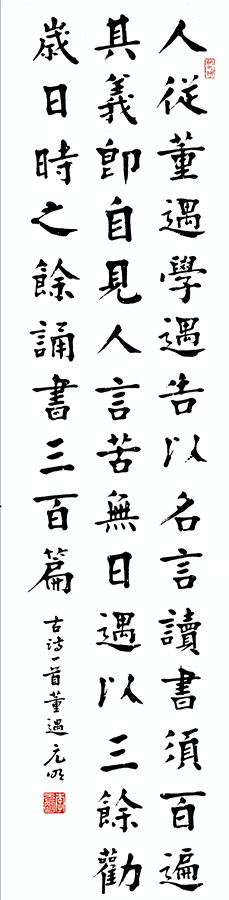 人從董遇學遇告以名言讀書須百遍
其義即自見人言苦無日遇以三餘勸
歲日時之餘誦書三百篇
古诗一首董遇 元明